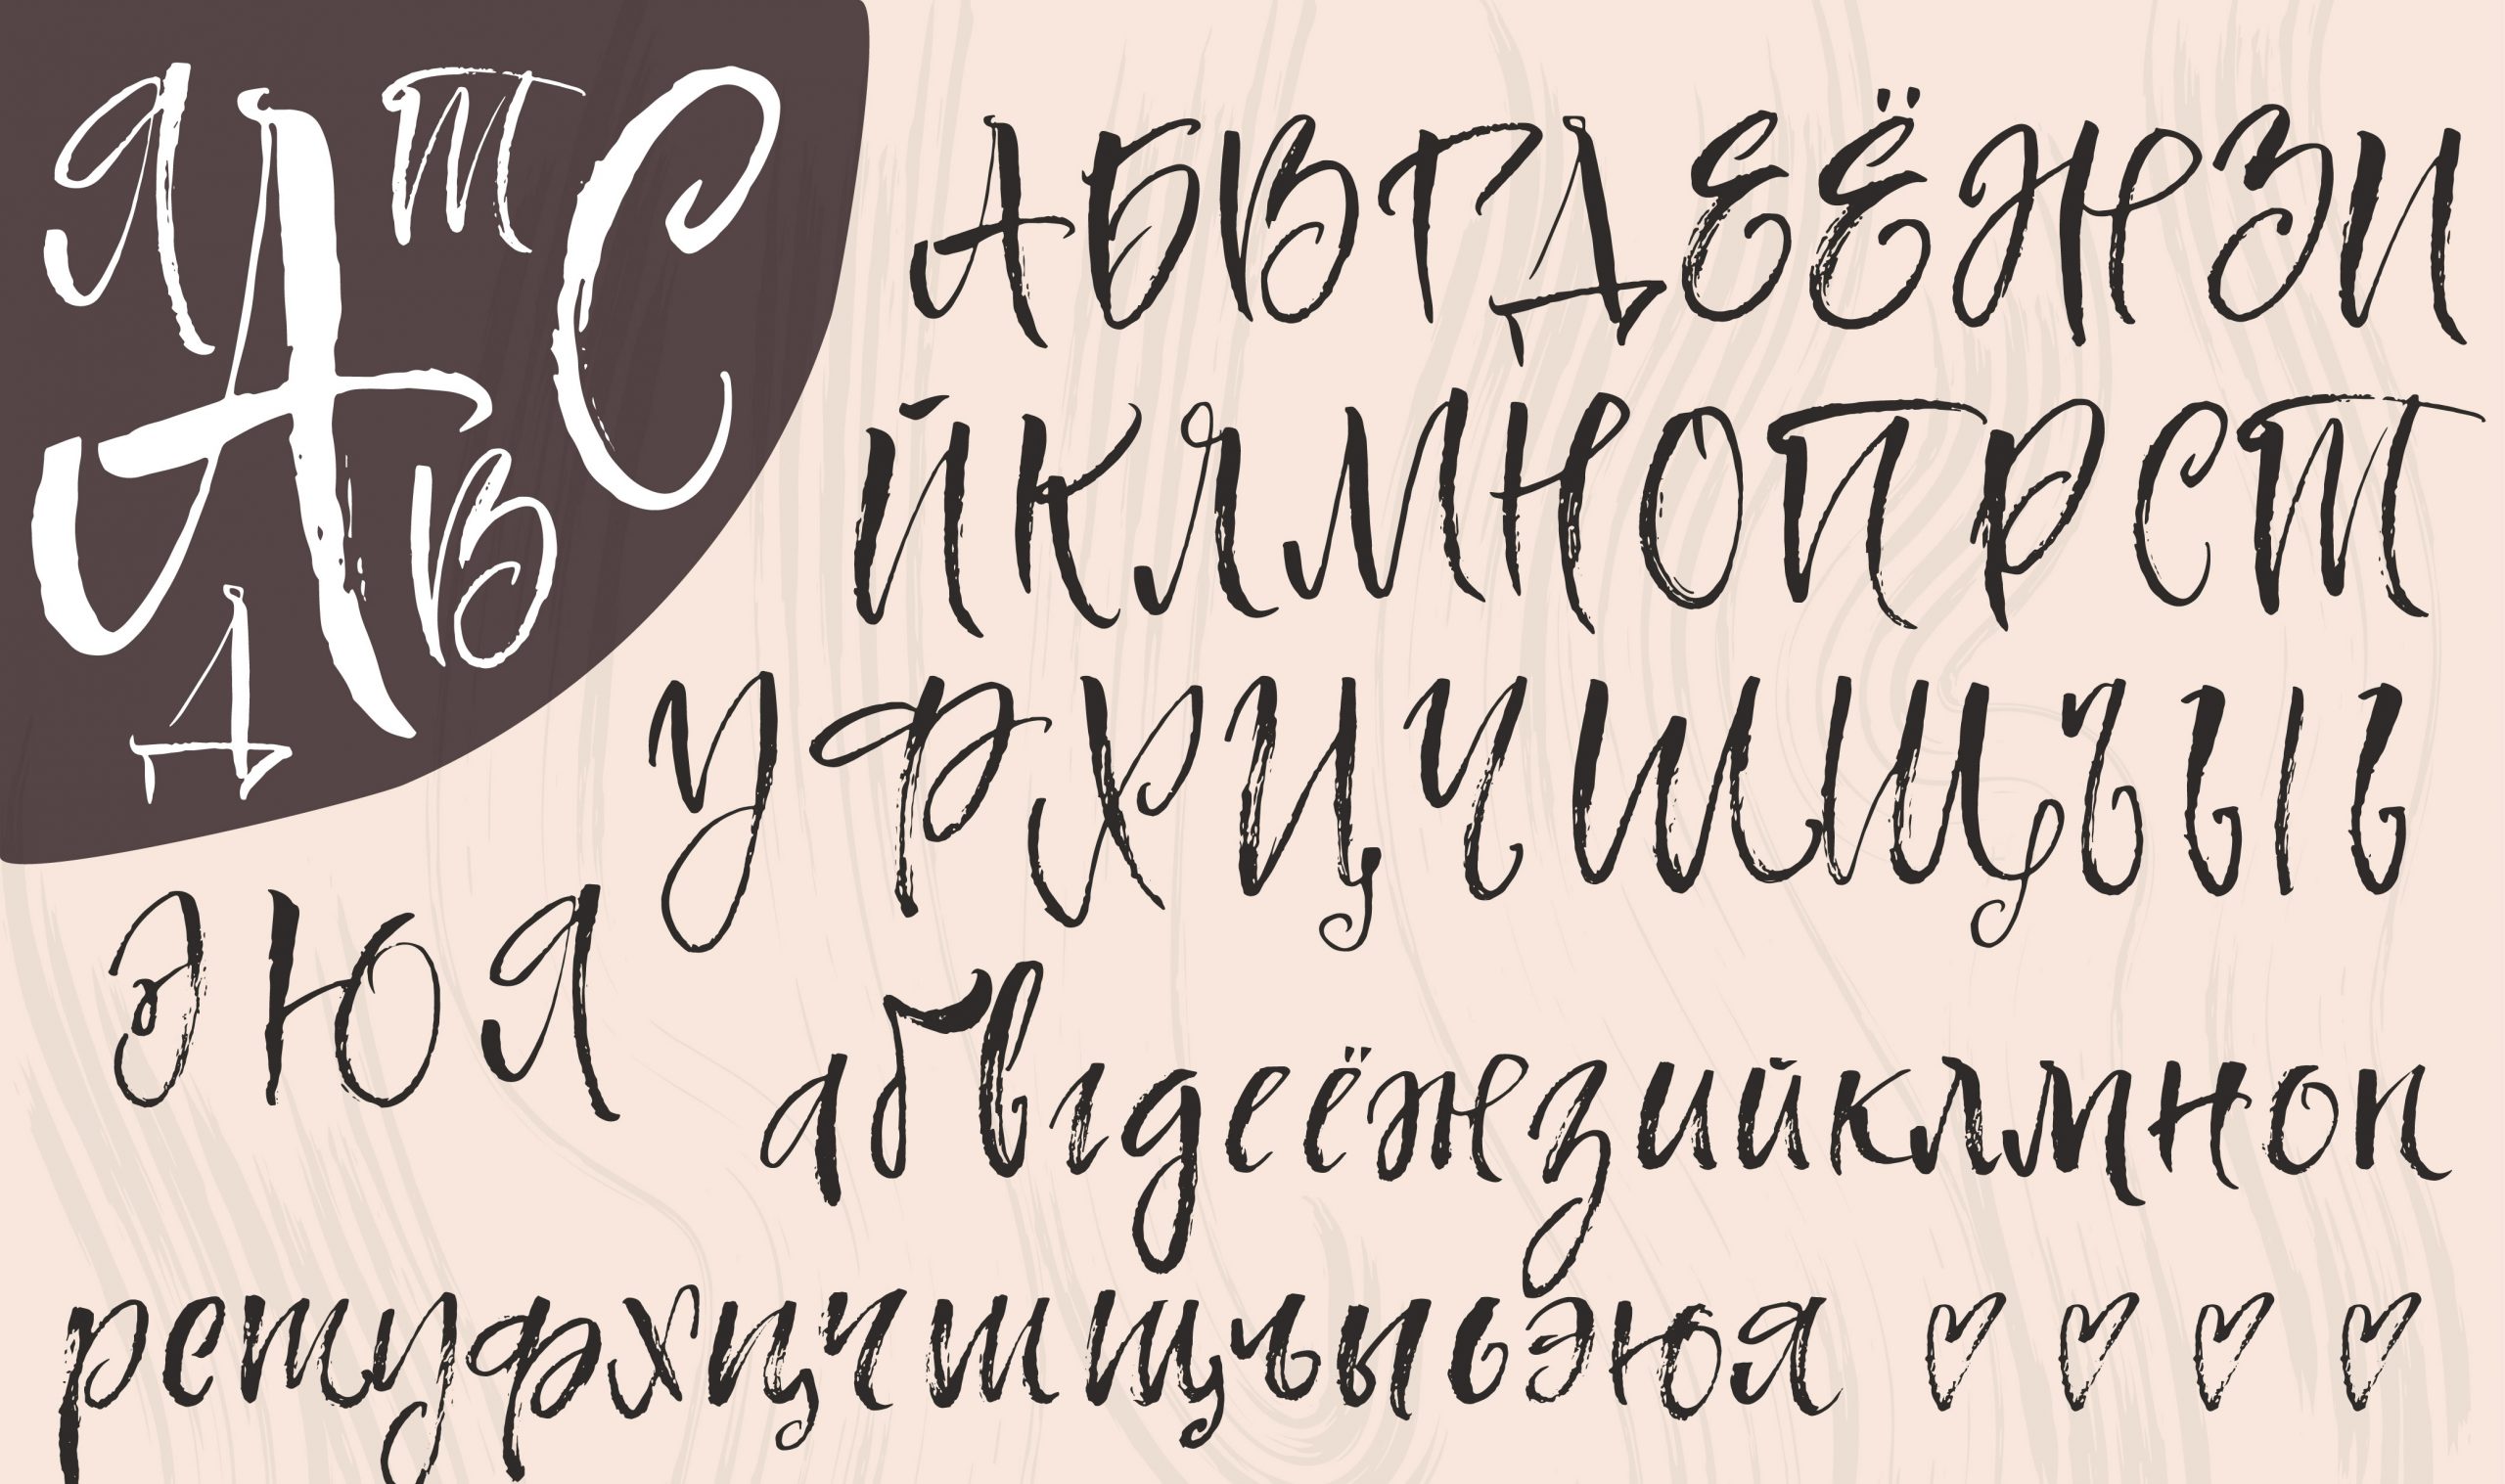 Я Т С
А В
Д
АБВГДЕЁЖЗИ
ЙКЛМНОПРСТ
УФХЦЧШЩЪЫЬ
ЭЮЯ
абвгдеёжзийклмноп
рстуфхцчшщъыьэюя ♡ ♡ ♡ ♡